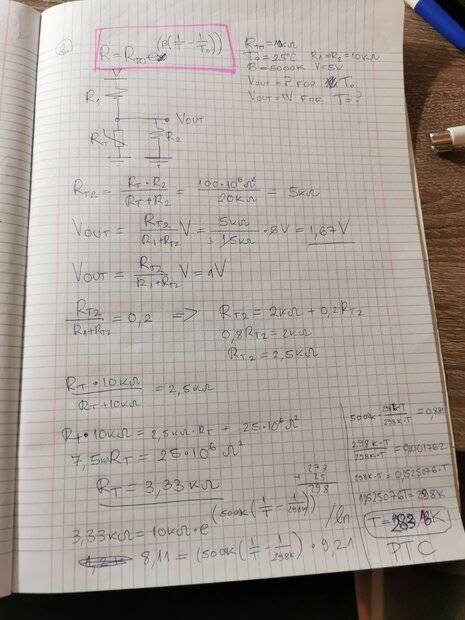 2)
R = R_T0 e^(β(1/T - 1/T0))
R_T0 = 10kΩ
T0 = 25°C R1 = R2 = 10kΩ
B = 5000K V = 5V
VOUT = ? FOR T0
VOUT = 1V FOR T = ?
V
R1
VOUT
RT
R2
RT2 = RT · R2 / RT + R2 = 100·10^6 Ω² / 20kΩ = 5kΩ
VOUT = RT2 / R1+RT2 V = 5kΩ / 15kΩ · 5V = 1,67V
VOUT = RT2 / R1+RT2 V = 1V
RT2 / R1+RT2 = 0,2 => RT2 = 2kΩ + 0,2RT2
0,8RT2 = 2kΩ
RT2 = 2,5kΩ
RT · 10kΩ / RT + 10kΩ = 2,5kΩ
RT · 10kΩ = 2,5kΩ · RT + 25·10^6 Ω²
7,5kΩRT = 25·10^6 Ω²
RT = 3,33kΩ
273
+ 25
298
3,33kΩ = 10kΩ · e^(500K(1/T - 1/298K)) / ln
8,11 = (500K(1/T - 1/298K)) · 9,21
298K-T / 298K·T
298K·T
T = 283 K
PTC